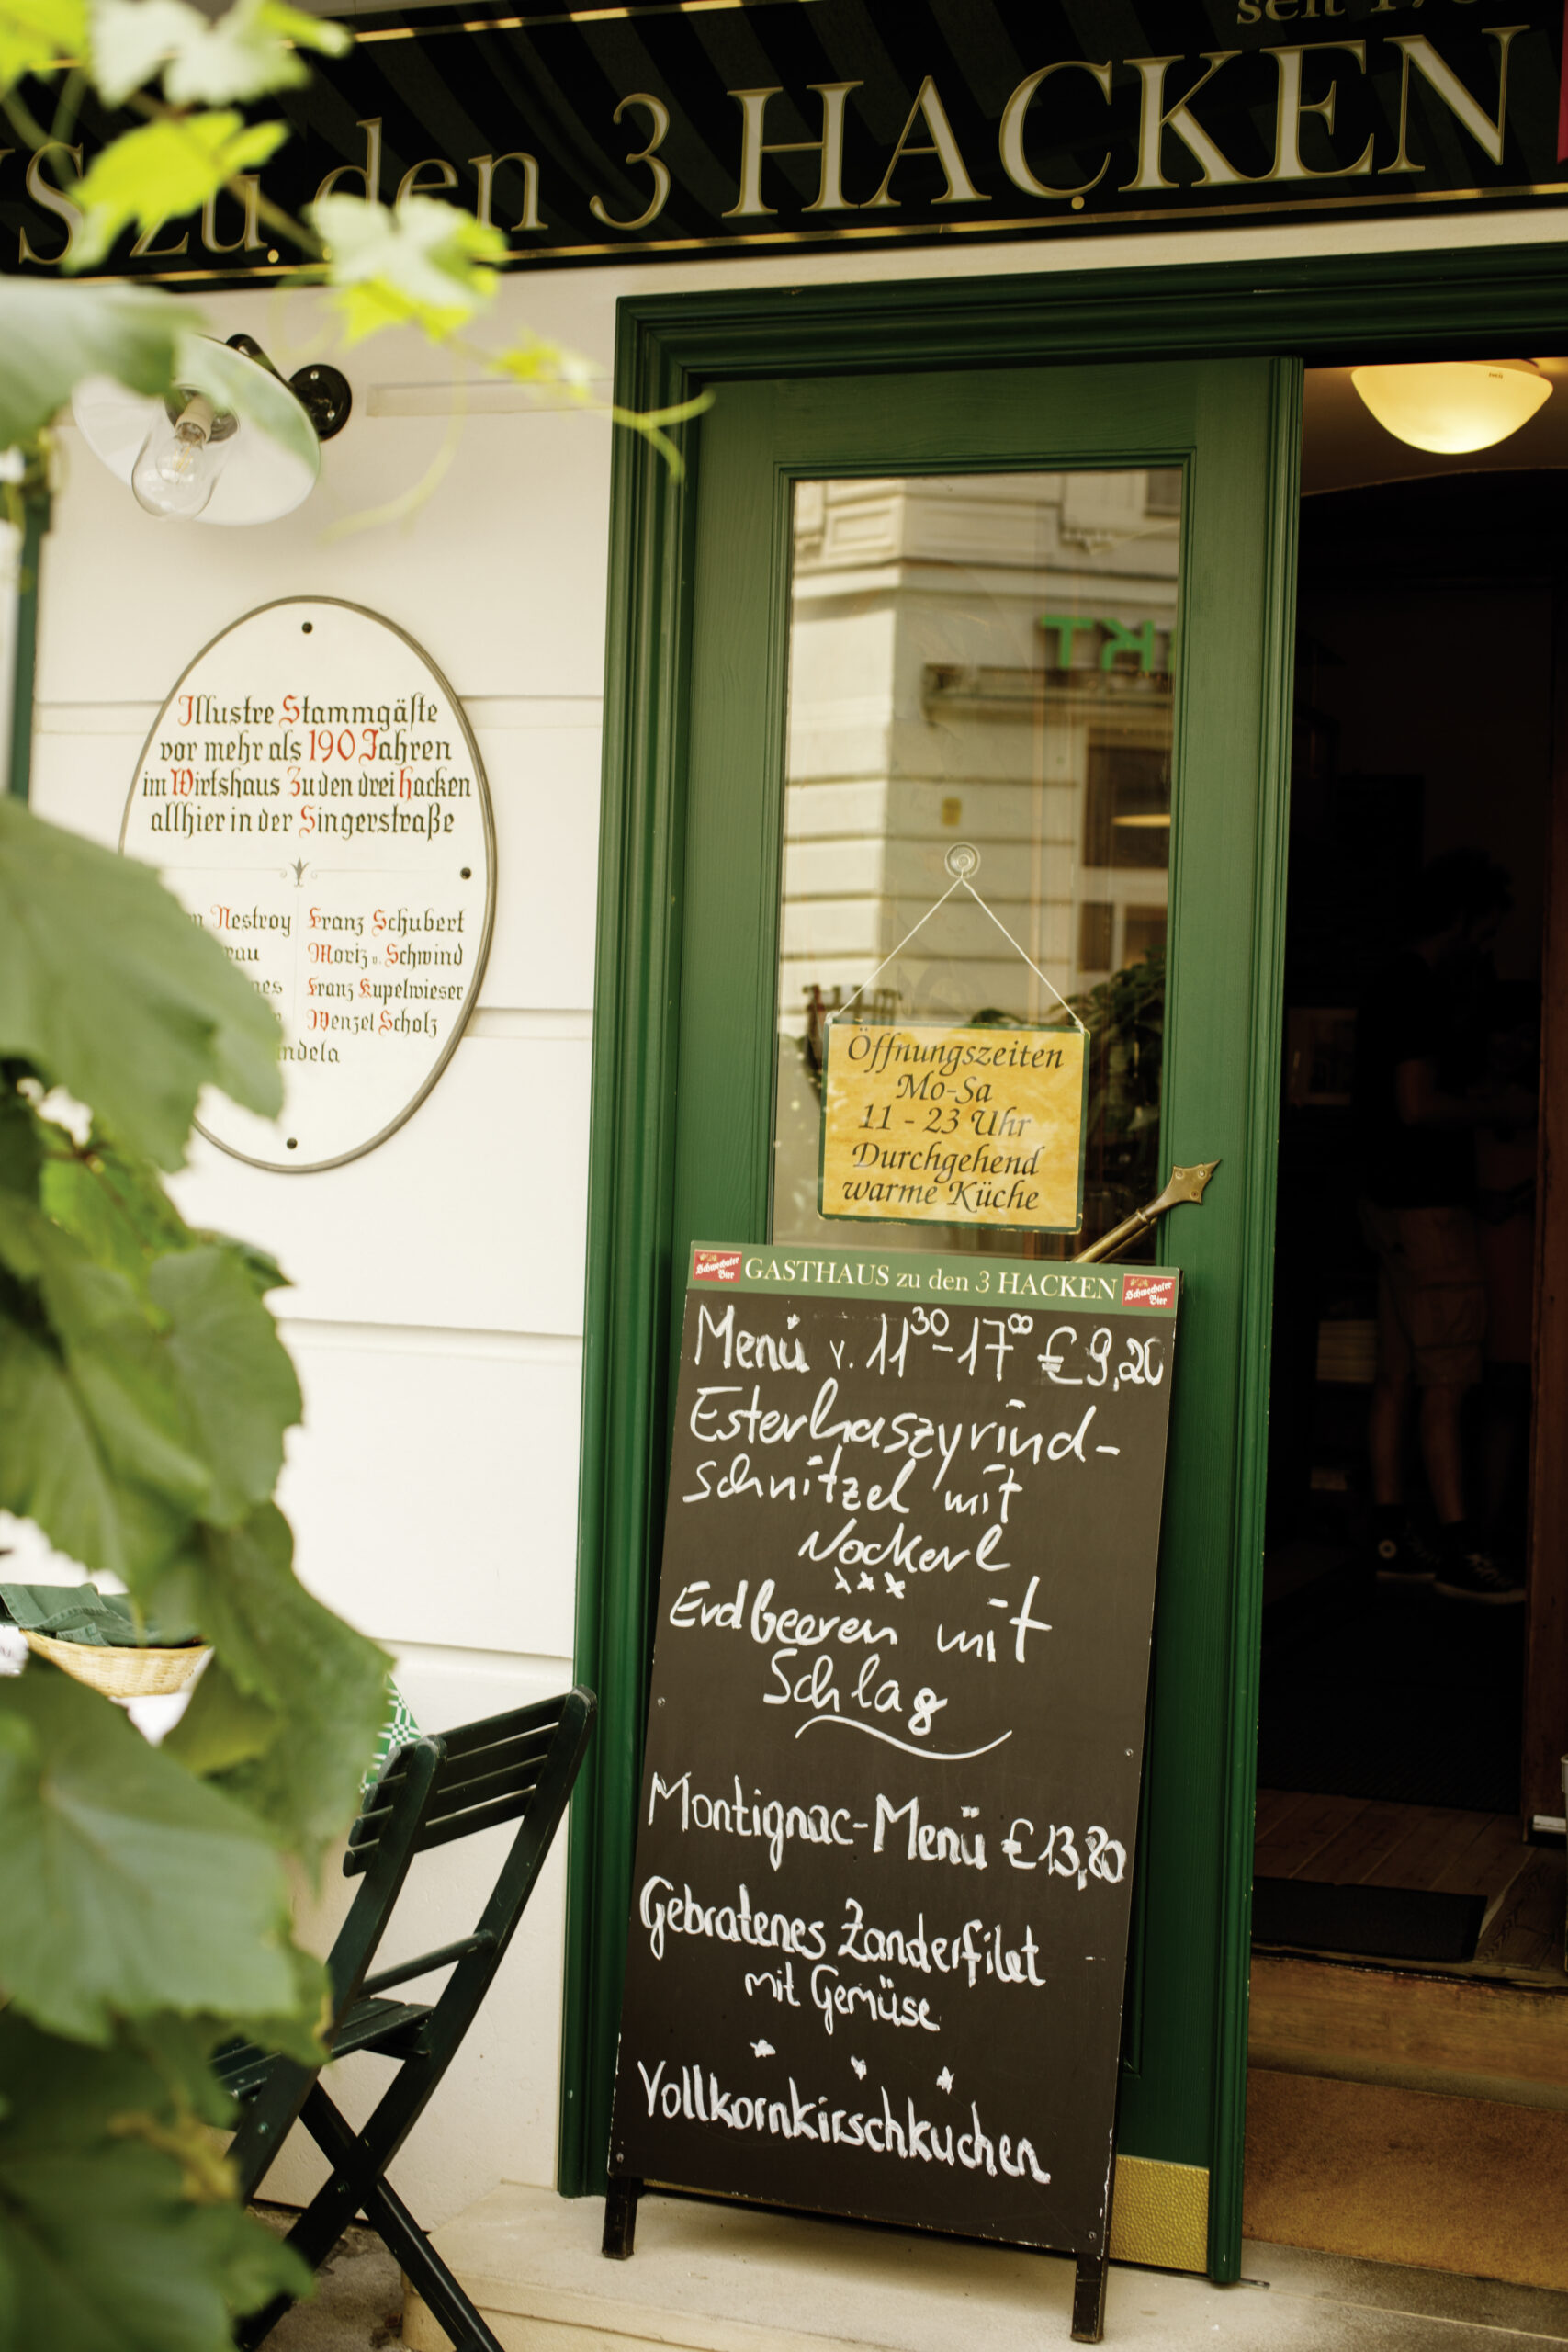 seit
zu den 3 HACKEN
Illustre Stammgäste
vor mehr als 190 Jahren
im Wirtshaus Zu den drei Hacken
allhier in der Singerstraße
Nestroy Franz Schubert
Moriz v. Schwind
Franz Kupelwieser
Wenzel Scholz
Öffnungszeiten
Mo-Sa
11 - 23 Uhr
Durchgehend
warme Küche
Schwechater Bier GASTHAUS zu den 3 HACKEN Schwechater Bier
Menü v. 11³⁰-17⁰⁰ € 9,20
Esterhaszyrind-
schnitzel mit
Nockerl
x x x
Erdbeeren mit
Schlag
Montignac-Menü € 13,80
Gebratenes Zanderfilet
mit Gemüse
Vollkornkirschkuchen